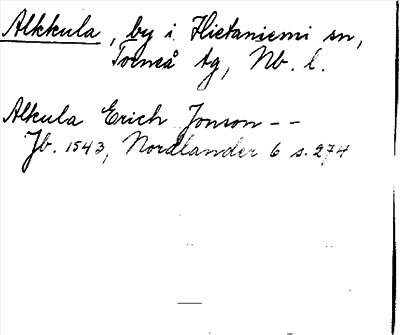 Alkkula, by i Hietaniemi sn,
Torneå tg, Nb. l.
Alkula Erich Jonson - -
Jb. 1543, Nordlander 6 s. 274